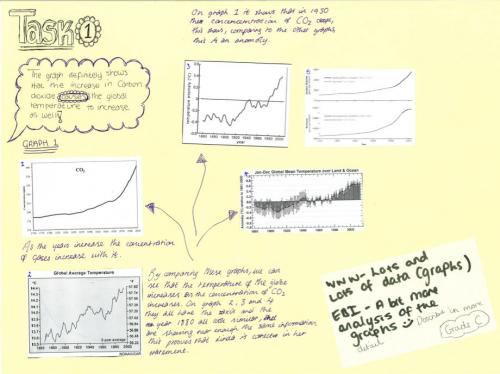 Task 1
On graph 1 it shows that in 1950
the concentration of CO2 drops,
this shows, comparing to the other graphs,
this is an anomaly.
The graph definitely shows
that the increase in Carbon
dioxide causes the global
temperature to increase
as well!
GRAPH 1
1.
CO2
3
Temperature Anomaly (°C)
year
4
Jan-Dec Global Mean Temperature over Land & Ocean
As the years increase the concentration
of gases increase with it.
2
Global Average Temperature
5-year average
By comparing these graphs, we can
see that the temperature of the globe
increases as the concentration of CO2
increases. On graph 2, 3 and 4
they all have the axis and the
year 1880 all are similar,
are showing not enough the same information
This proves that Linda is correct in her
statement.
WWW - Lots and
Lots of data (graphs)
EBI - A bit more
analysis of the
graphs
Describe in more
detail
Grade C